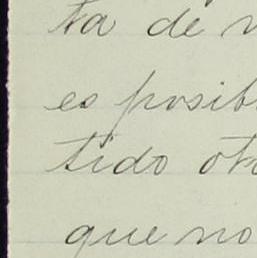 ta de
es posib
tido otr
que no